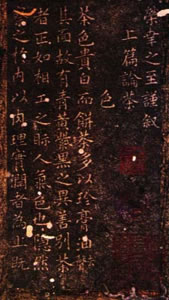 榮幸之至謹敘
上篇論茶
色
茶色貴白而餅茶多以珍膏油去聲
其面故有青黃紫黑之異善別茶
者正如相工之眎人氣色也隱然
察之於內以肉理實潤者為上既